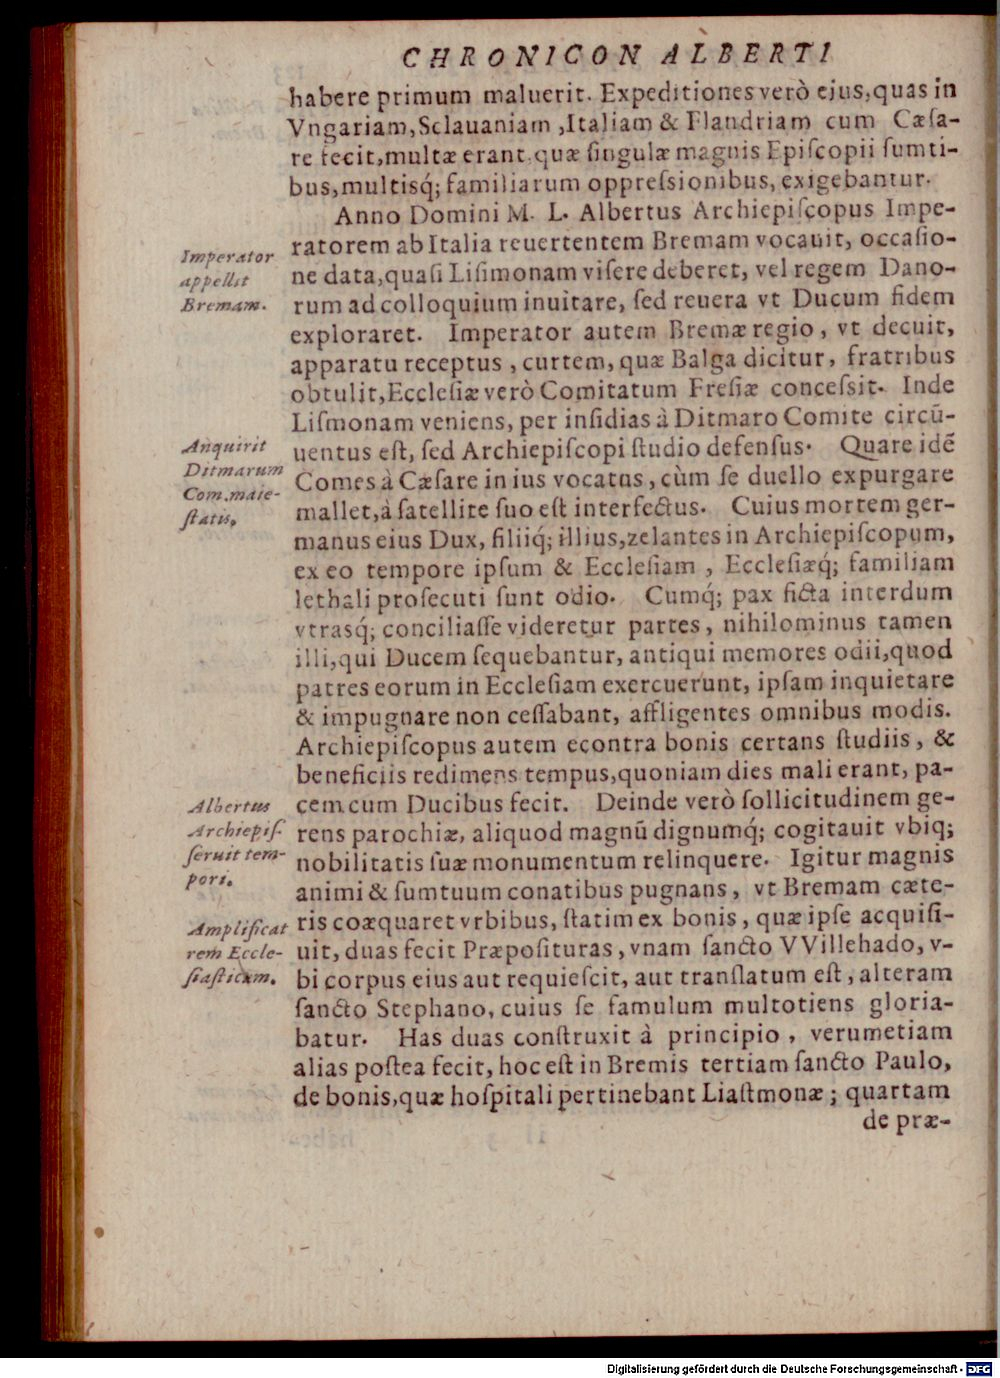 CHRONICON ALBERTI
habere primum maluerit. Expeditiones verò ejus, quas in
Vngariam, Sclauaniam, Italiam & Flandriam cum Cæſa-
re fecit, multæ erant, quæ ſingulæ magnis Epiſcopii ſumti-
bus, multisq́; familiarum oppreſsionibus, exigebantur.
Anno Domini M. L. Albertus Archiepiſcopus Impe-
ratorem ab Italia reuertentem Bremam vocauit, occaſio-
Imperator
appellit
Bremam.
ne data, quaſi Liſimonam viſere deberet, vel regem Dano-
rum ad colloquium inuitare, ſed reuera vt Ducum fidem
exploraret. Imperator autem Bremæ regio, vt decuit,
apparatu receptus, curtem, quæ Balga dicitur, fratribus
obtulit, Eccleſiæ verò Comitatum Freſiæ conceſsit. Inde
Liſmonam veniens, per inſidias à Ditmaro Comite circũ-
Anquirit
Ditmarum
Com. maie-
ſtatis.
uentus eſt, ſed Archiepiſcopi ſtudio defenſus. Quare idẽ
Comes à Cæſare in ius vocatus, cùm ſe duello expurgare
mallet, à ſatellite ſuo eſt interfectus. Cuius mortem ger-
manus eius Dux, filiiq́; illius, zelantes in Archiepiſcopum,
ex eo tempore ipſum & Eccleſiam, Eccleſiæq́; familiam
lethali proſecuti ſunt odio. Cumq́; pax ficta interdum
vtrasq́; conciliaſſe videretur partes, nihilominus tamen
illi, qui Ducem ſequebantur, antiqui memores odii, quod
patres eorum in Eccleſiam exercuerunt, ipſam inquietare
& impugnare non ceſſabant, affligentes omnibus modis.
Archiepiſcopus autem econtra bonis certans ſtudiis, &
beneficiis redimens tempus, quoniam dies mali erant, pa-
Albertus
Archiepiſ.
ſeruit tem-
pori.
cem cum Ducibus fecit. Deinde verò ſollicitudinem ge-
rens parochiæ, aliquod magnũ dignumq́; cogitauit vbiq;
nobilitatis ſuæ monumentum relinquere. Igitur magnis
animi & ſumtuum conatibus pugnans, vt Bremam cæte-
Amplificat
rem Eccle-
ſiaſticam.
ris coæquaret vrbibus, ſtatim ex bonis, quæ ipſe acquiſi-
uit, duas fecit Præpoſituras, vnam ſancto VVillehado, v-
bi corpus eius aut requieſcit, aut tranſlatum eſt, alteram
ſancto Stephano, cuius ſe famulum multotiens gloria-
batur. Has duas conſtruxit à principio, verumetiam
alias poſtea fecit, hoc eſt in Bremis tertiam ſancto Paulo,
de bonis, quæ hoſpitali pertinebant Liaſtmonæ; quartam
de præ-
Digitalisierung gefördert durch die Deutsche Forschungsgemeinschaft - DFG